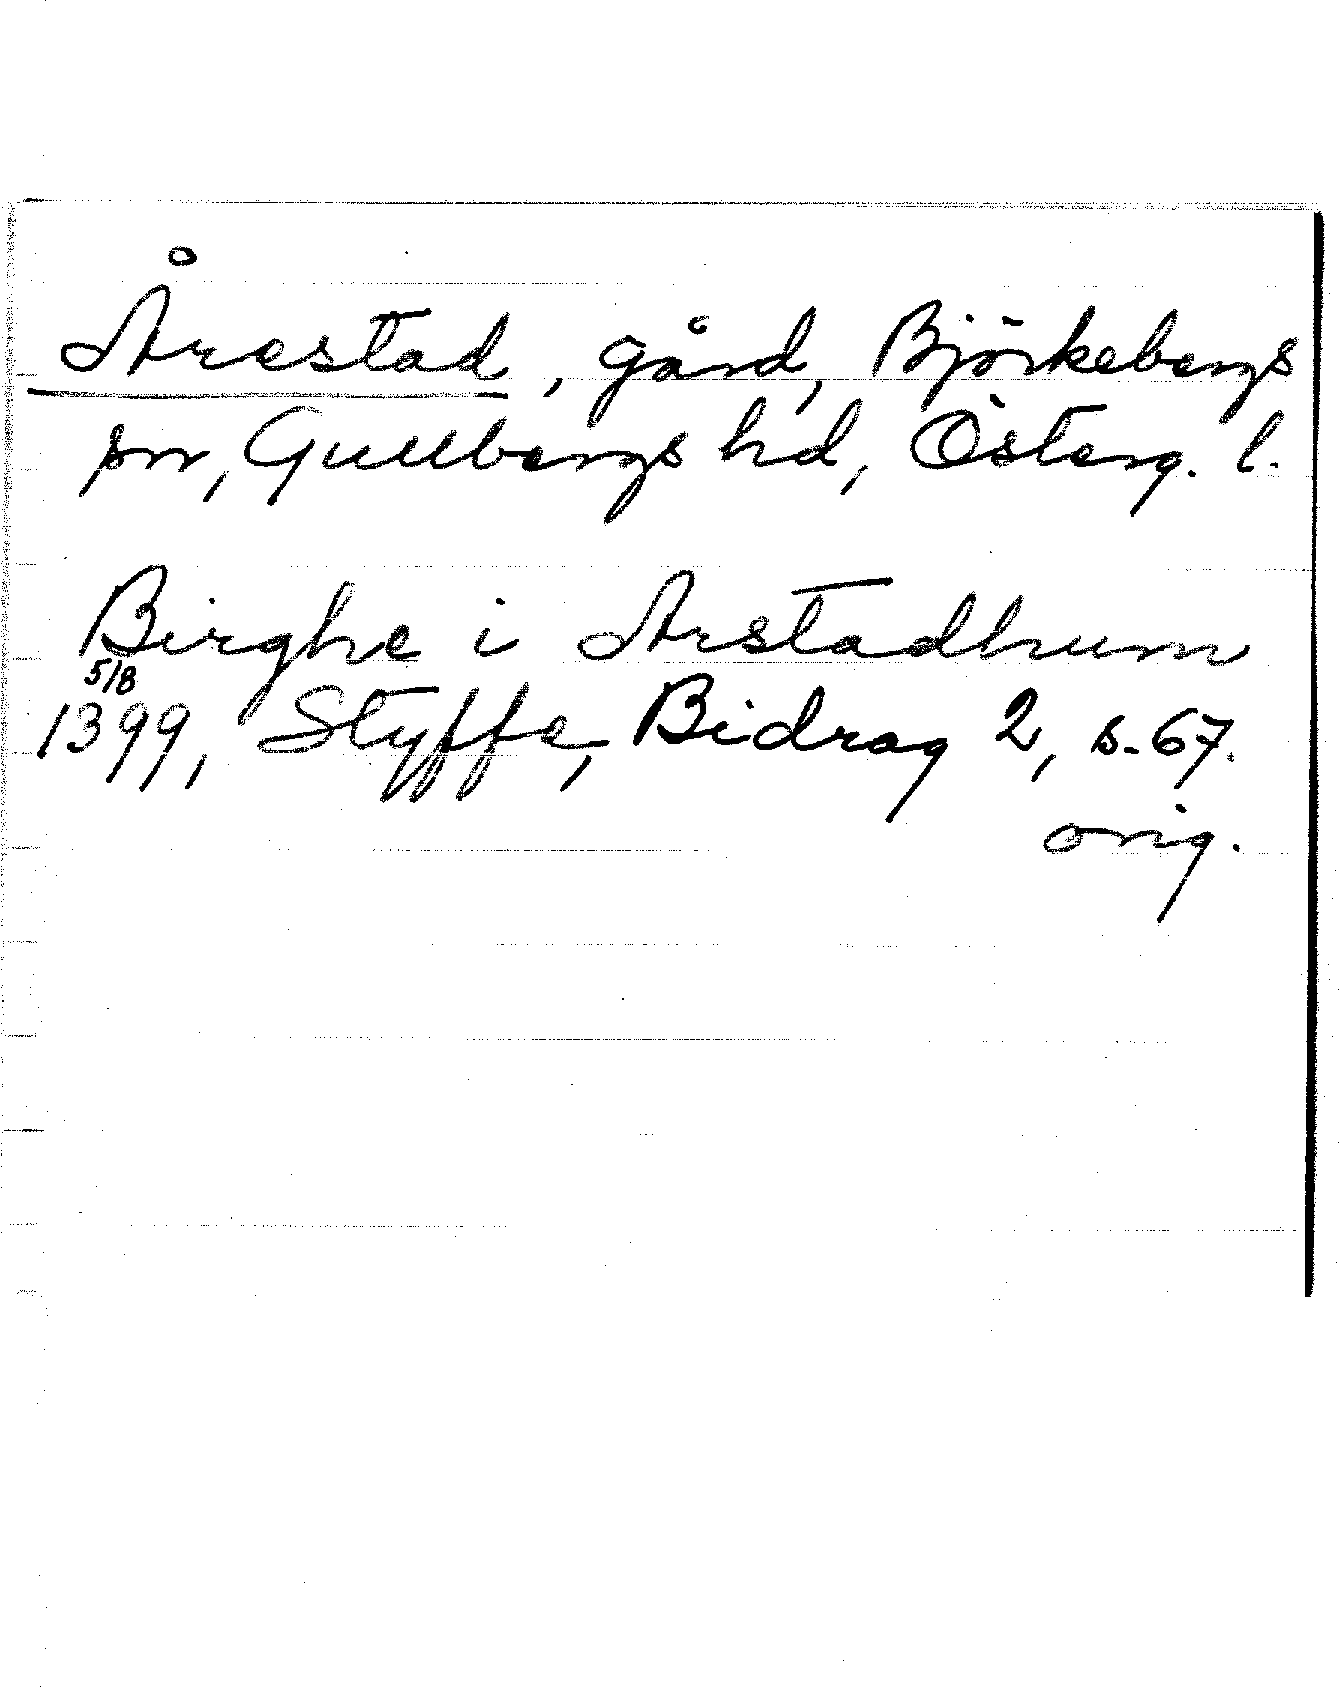 Årestad, gård, Björkebergs
sn, Gullbergs hd, Österg. l.
Birghe i Arstadhum
5/8
1399, Styffe, Bidrag 2, s. 67.
orig.